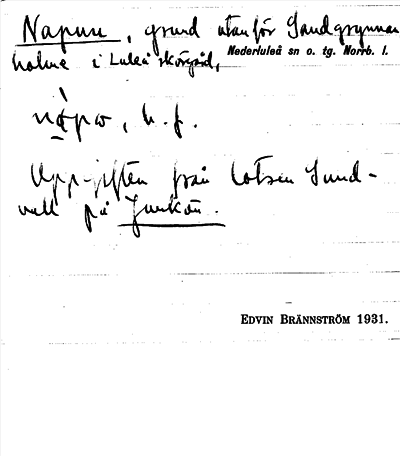 Napuu, grund utanför Sandgrynnan
holme i Luleå skärgård, Nederluleå sn o. tg. Norrb. l.
h. f.
Uppgiften från lotsen Sund-
vall på Junkön.
EDVIN BRÄNNSTRÖM 1931.